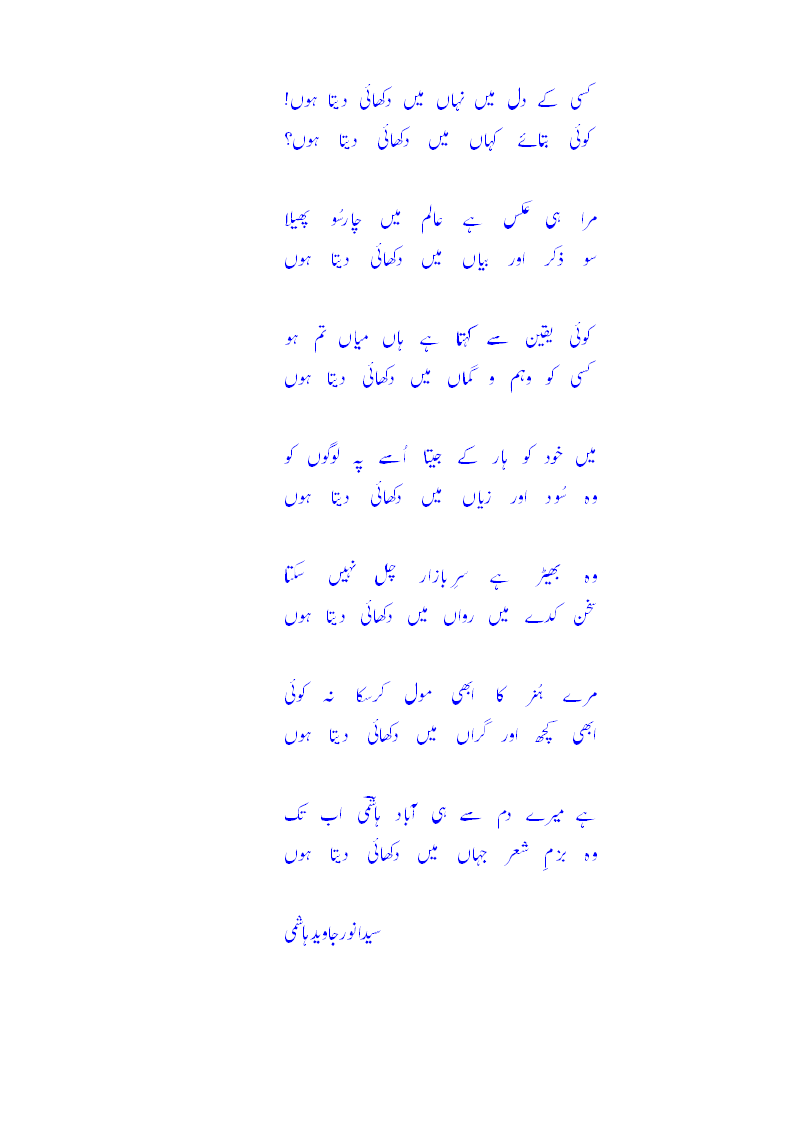 کسی کے دل میں نہاں میں دکھائی دیتا ہوں!
کوئی بتائے کہاں میں دکھائی دیتا ہوں؟
مرا ہی عکس ہے عالم میں چارسُو پھیلا
سو ذکر اور بیاں میں دکھائی دیتا ہوں
کوئی یقین سے کہتا ہے ہاں میاں تم ہو
کسی کو وہم و گماں میں دکھائی دیتا ہوں
میں خود کو ہار کے جیتا اُسے پہ لوگوں کو
وہ سُود اور زیاں میں دکھائی دیتا ہوں
وہ بھیڑ ہے سرِ بازار چل نہیں سکتا
سخن کدے میں رواں میں دکھائی دیتا ہوں
مرے ہُنر کا ابھی مول کرسکا نہ کوئی
ابھی کچھ اور گراں میں دکھائی دیتا ہوں
ہے میرے دم سے ہی آباد ہاشمیؔ اب تک
وہ بزمِ شعر جہاں میں دکھائی دیتا ہوں
سیدانورجاویدہاشمی